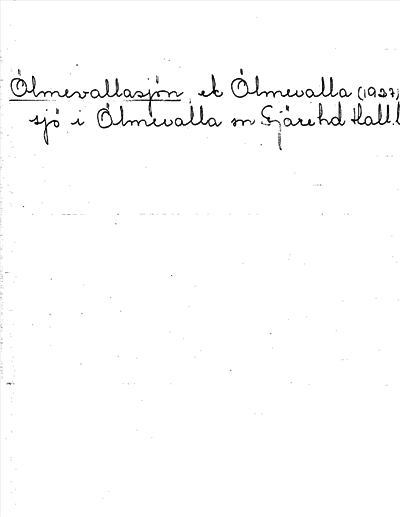 Ölmevallasjön, ek Ölmevalla (1927)
sjö i Ölmevalla sn Fjäre hd Hall.l